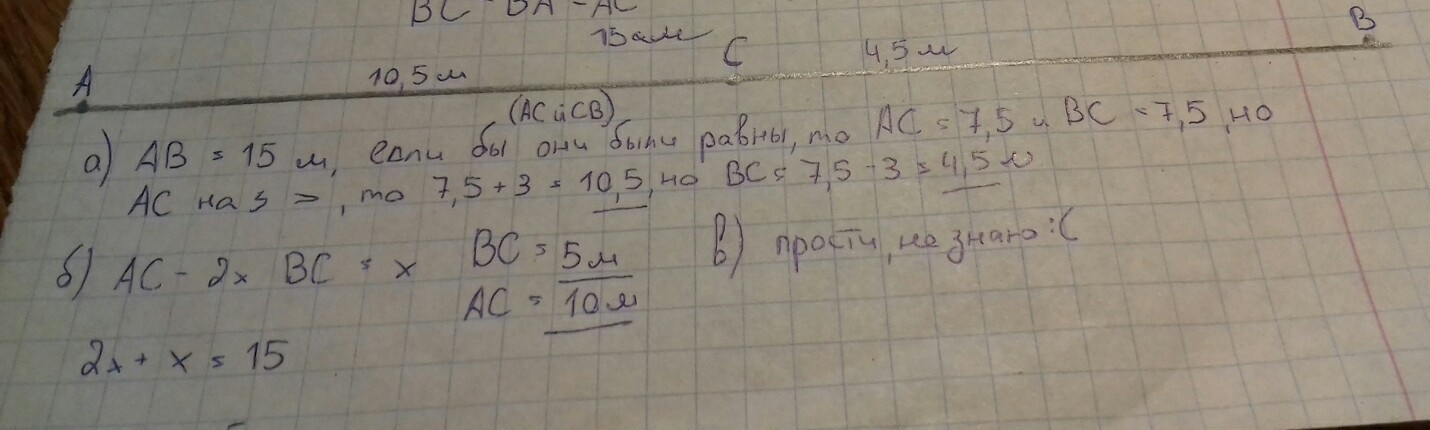 BC BA - AC
15 м
A 10,5 м C 4,5 м B
(AC и CB)
а) AB = 15 м, если бы они были равны, то AC = 7,5 и BC = 7,5, но
AC на 3 >, то 7,5 + 3 = 10,5, но BC = 7,5 - 3 = 4,5 м
б) AC - 2x BC = x BC = 5 м в) прости, не знаю :(
AC = 10 м
2x + x = 15